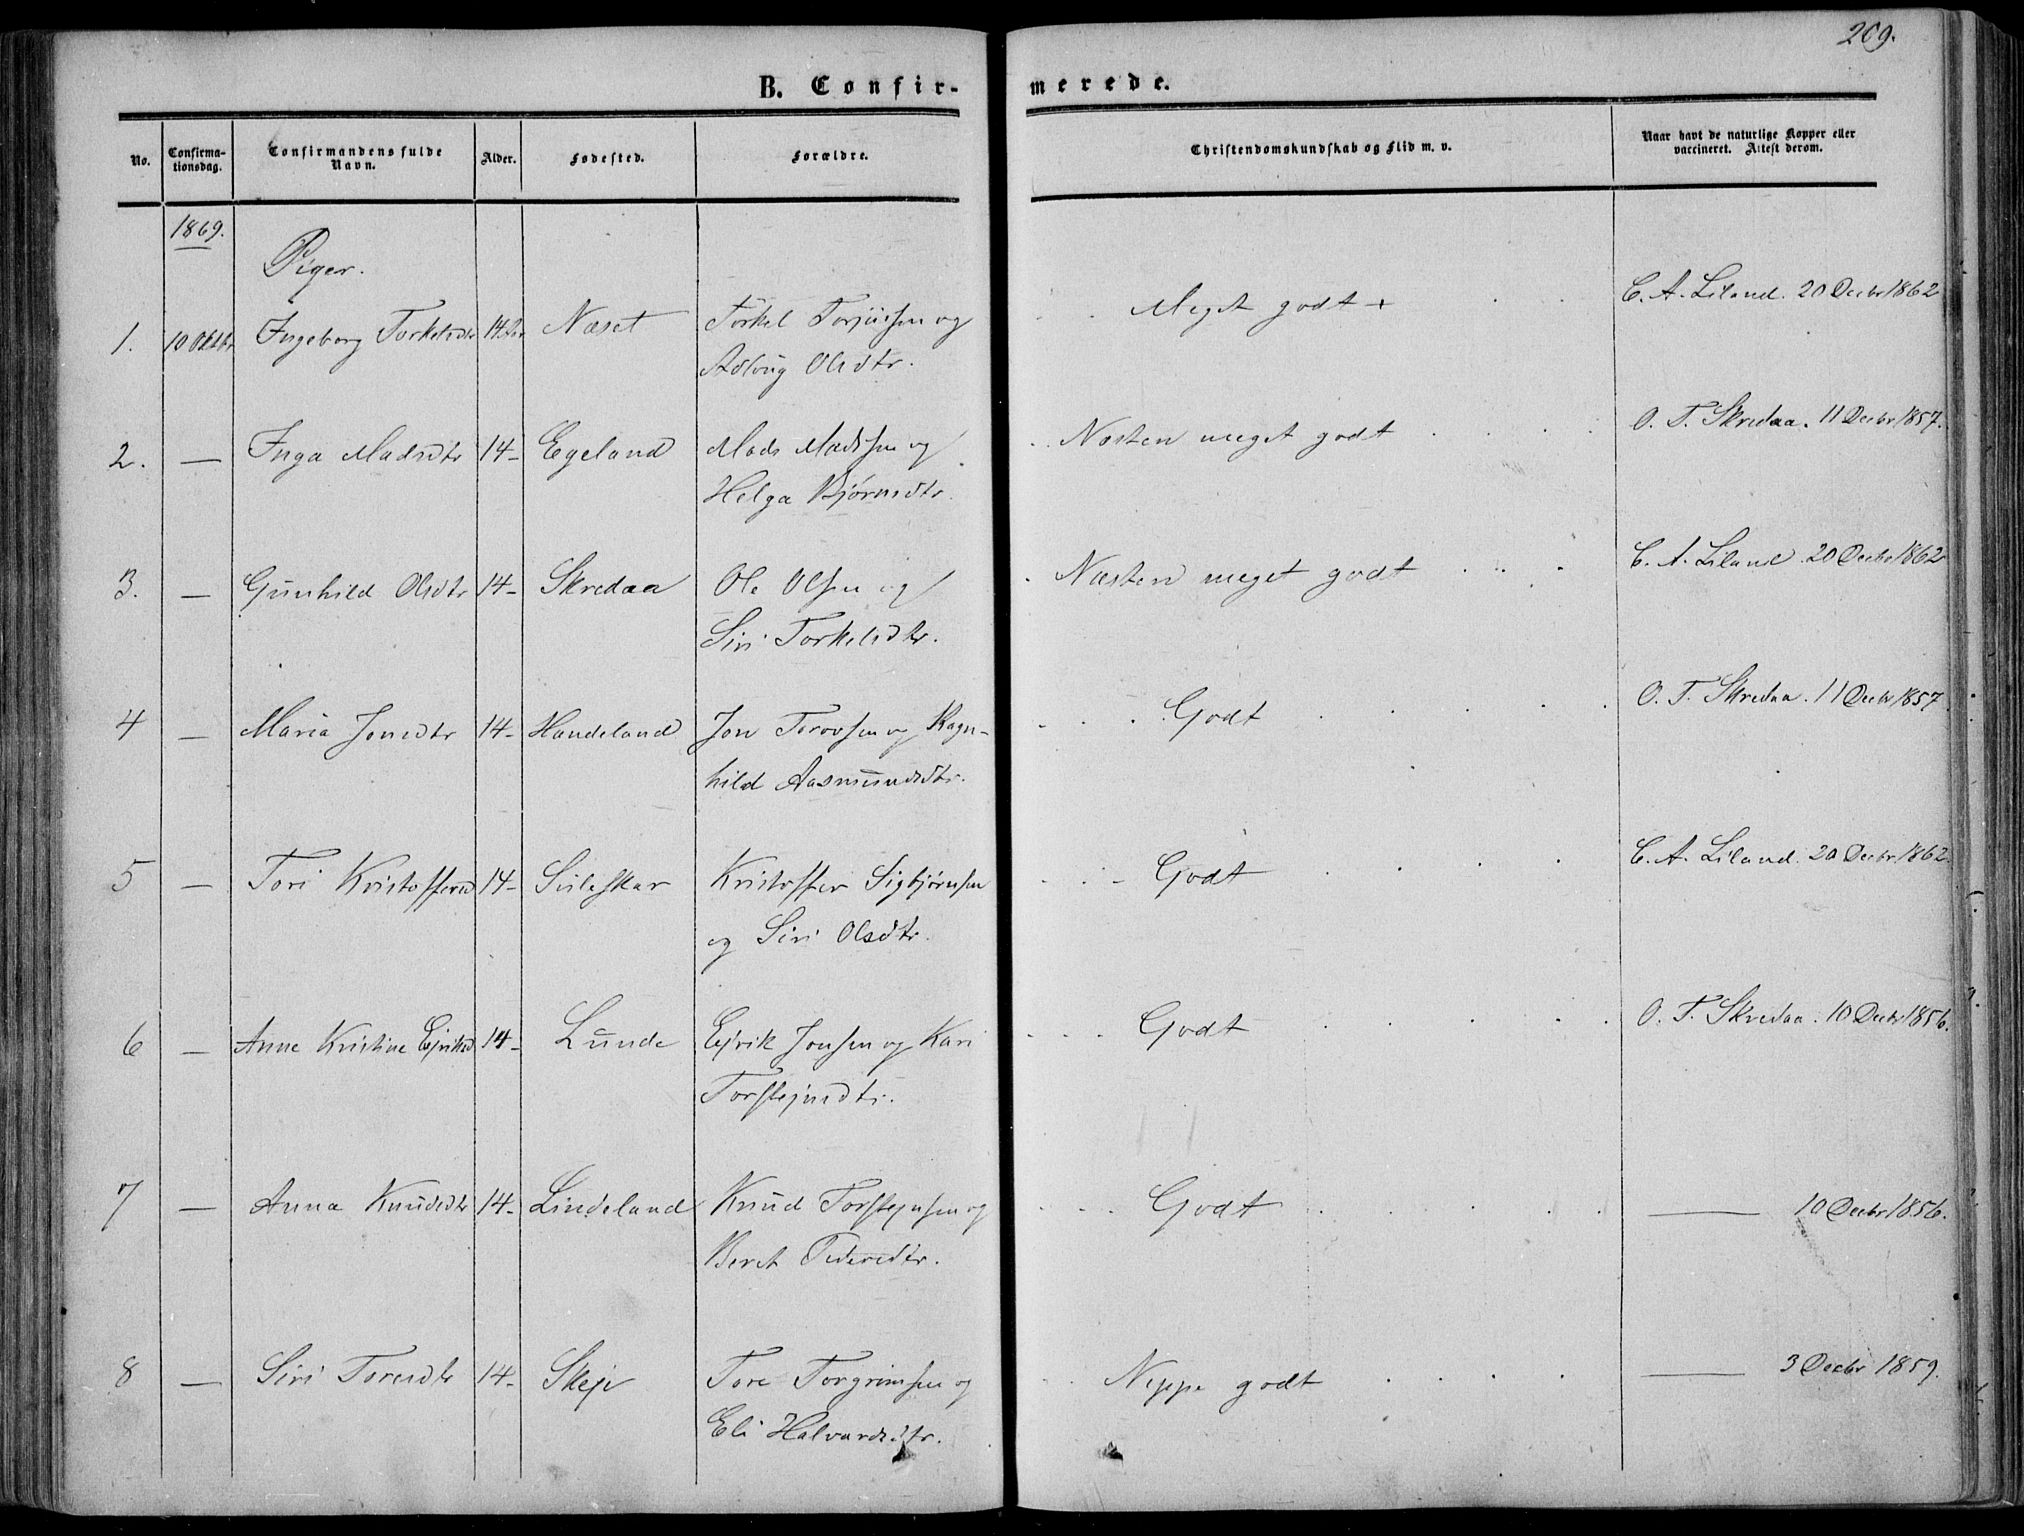 269.
B. Confir-merede.
No. Confirma-tionsdag. Confirmandens fulde Navn. Alder. Fødested. Forældre. Christendomskundskab og Flid m. v. Naar havt de naturlige Kopper eller vaccineret. Attest derom.
1869.
Piger.
1. 10 Oktbr Ingeborg Torkelsdtr 14 Næset Torkel Torjüssen og Meget godt + C. A. Liland. 20 Decbr 1862
Asloug Olsdtr.
2. — Inga Madsdtr 14- Egeland Mads Madssen og Næsten meget godt O. T. Skredaa. 11 Decbr 1857.
Helga Bjørnsdtr.
3. — Günhild Olsdtr 14- Skredaa Ole Olsen og Næsten meget godt C. A. Liland 20 Decbr 1862
Siri Torkelsdtr.
4 — Maria Jonsdtr 14- Handeland Jon Torovsen og Ragn- Godt O. T. Skredaa. 11 Decbr 1857
hild Aasmündsdtr.
5 — Tori Kristoffersd 14- Suleskar Kristoffer Sigbjørnsen Godt C. A. Liland. 20 Decbr 1862.
og Siri Olsdtr.
6 — Anne Kristine Ejriksd 14- Lünde Ejrik Jonsen og Kari Godt O. T. Skredaa. 10 Decbr 1856.
Torstejnsdtr.
7 — Anna Knüdsdtr 14- Lindeland Knüd Torstejnsen og Godt — 10 Decbr 1856.
Beret Pedersdtr.
8 — Siri Toresdtr 14- Skeje Tore Torgrimsen og Neppe godt — 3 Decbr 1859.
Eli Halvardsdtr.